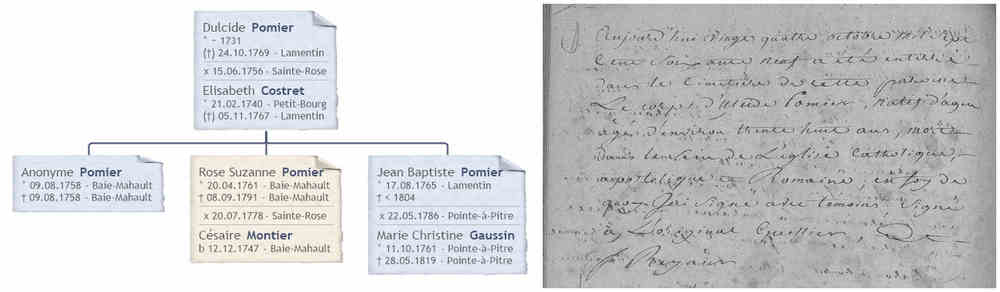 Dulcide Pomier
° ~ 1731
(†) 24.10.1769 - Lamentin
x 15.06.1756 - Sainte-Rose
Elisabeth Costret
° 21.02.1740 - Petit-Bourg
(†) 05.11.1767 - Lamentin
Anonyme Pomier
° 09.08.1758 - Baie-Mahault
† 09.08.1758 - Baie-Mahault
Rose Suzanne Pomier
° 20.04.1761 - Baie-Mahault
† 08.09.1791 - Baie-Mahault
x 20.07.1778 - Sainte-Rose
Césaire Montier
b 12.12.1747 - Baie-Mahault
Jean Baptiste Pomier
° 17.08.1765 - Lamentin
† < 1804
x 22.05.1786 - Pointe-à-Pitre
Marie Christine Gaussin
° 11.10.1761 - Pointe-à-Pitre
† 28.05.1819 - Pointe-à-Pitre
Aujourd'hui vingt quatre octobre mil sept
cent soixante neuf a été enterré
dans le cimetière de cette paroisse
Le corps Pomier, natif
âgé d'environ trente huit ans, mort
dans le sein de L'église Catholique,
apostolique et Romaine, en foy de
quoy j'ai signé avec témoins signé
à L'original